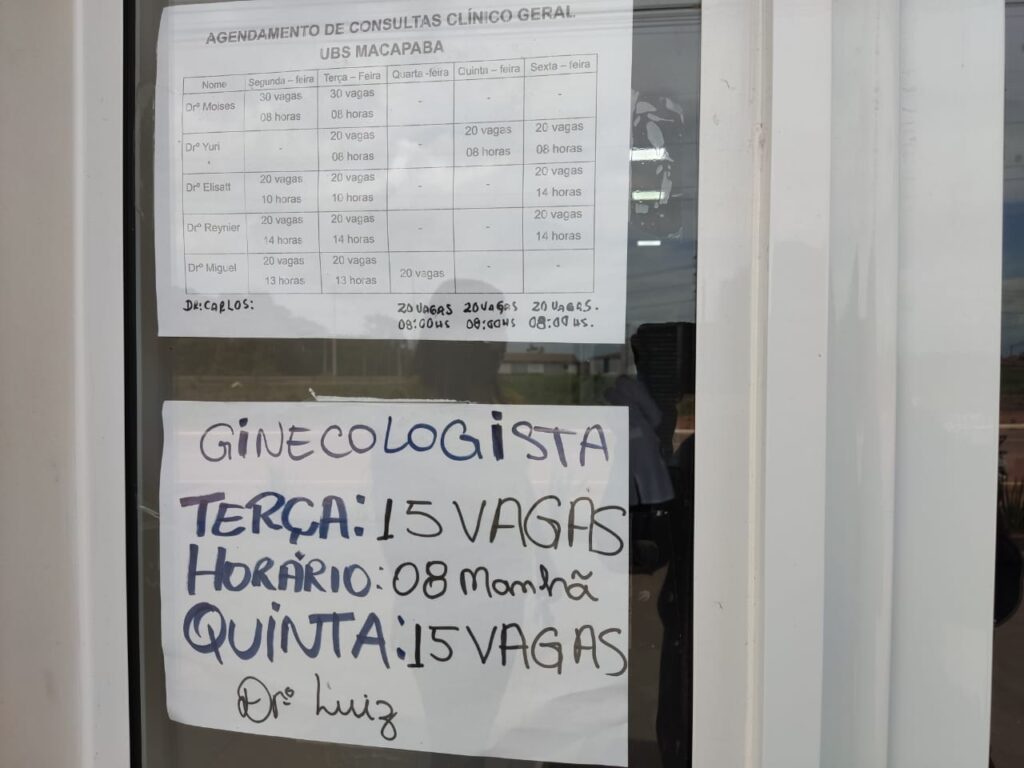 AGENDAMENTO DE CONSULTAS CLÍNICO GERAL
UBS MACAPABA
Nome Segunda – feira Terça – Feira Quarta -feira Quinta – feira Sexta – feira
Drº Moises 30 vagas 08 horas 30 vagas 08 horas - - -
Drº Yuri - 20 vagas 08 horas - 20 vagas 08 horas 20 vagas 08 horas
Drº Elisatt 20 vagas 10 horas 20 vagas 10 horas - - 20 vagas 14 horas
Drº Reynier 20 vagas 14 horas 20 vagas 14 horas - - 20 vagas 14 horas
Drº Miguel 20 vagas 13 horas 20 vagas 13 horas 20 vagas - -
DR: CARLOS: 20 VAGAS 20 VAGAS 20 VAGAS.
08:00HS 08:00HS 08:00 HS.
GINECOLOGISTA
TERÇA: 15 VAGAS
HORÁRIO: 08 Manhã
QUINTA: 15 VAGAS
Drº Luiz